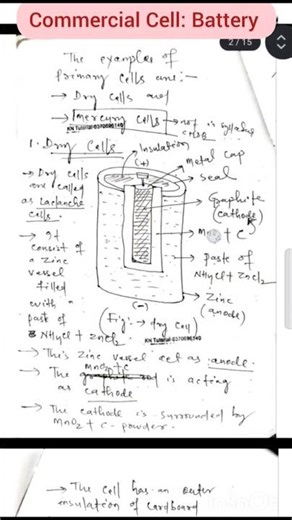 Commercial Cell: Battery
2/15
The examples of
Primary Cells are:-
→ Dry Cells and
→ Mercury Cells → not in syllabus
CHSE
1. Dry Cells
Insulation
(+)
metal cap
seal
→ Dry Cells
are called
as Leclanche
Cells.
Graphite
(cathode)
+ C
→ It
consist of
a zinc
vessel
filled
with a
paste of
NH4Cl + ZnCl2
paste of
NH4Cl + ZnCl2
Zinc
(anode)
(-)
(Fig:- → dry cell)
→ This zinc vessel act as anode.
MnO2 + C
→ The graphite rod is acting
as cathode
→ The cathode is surrounded by
MnO2 + C- powder.
→ The cell has an outer
insulation of cardboard